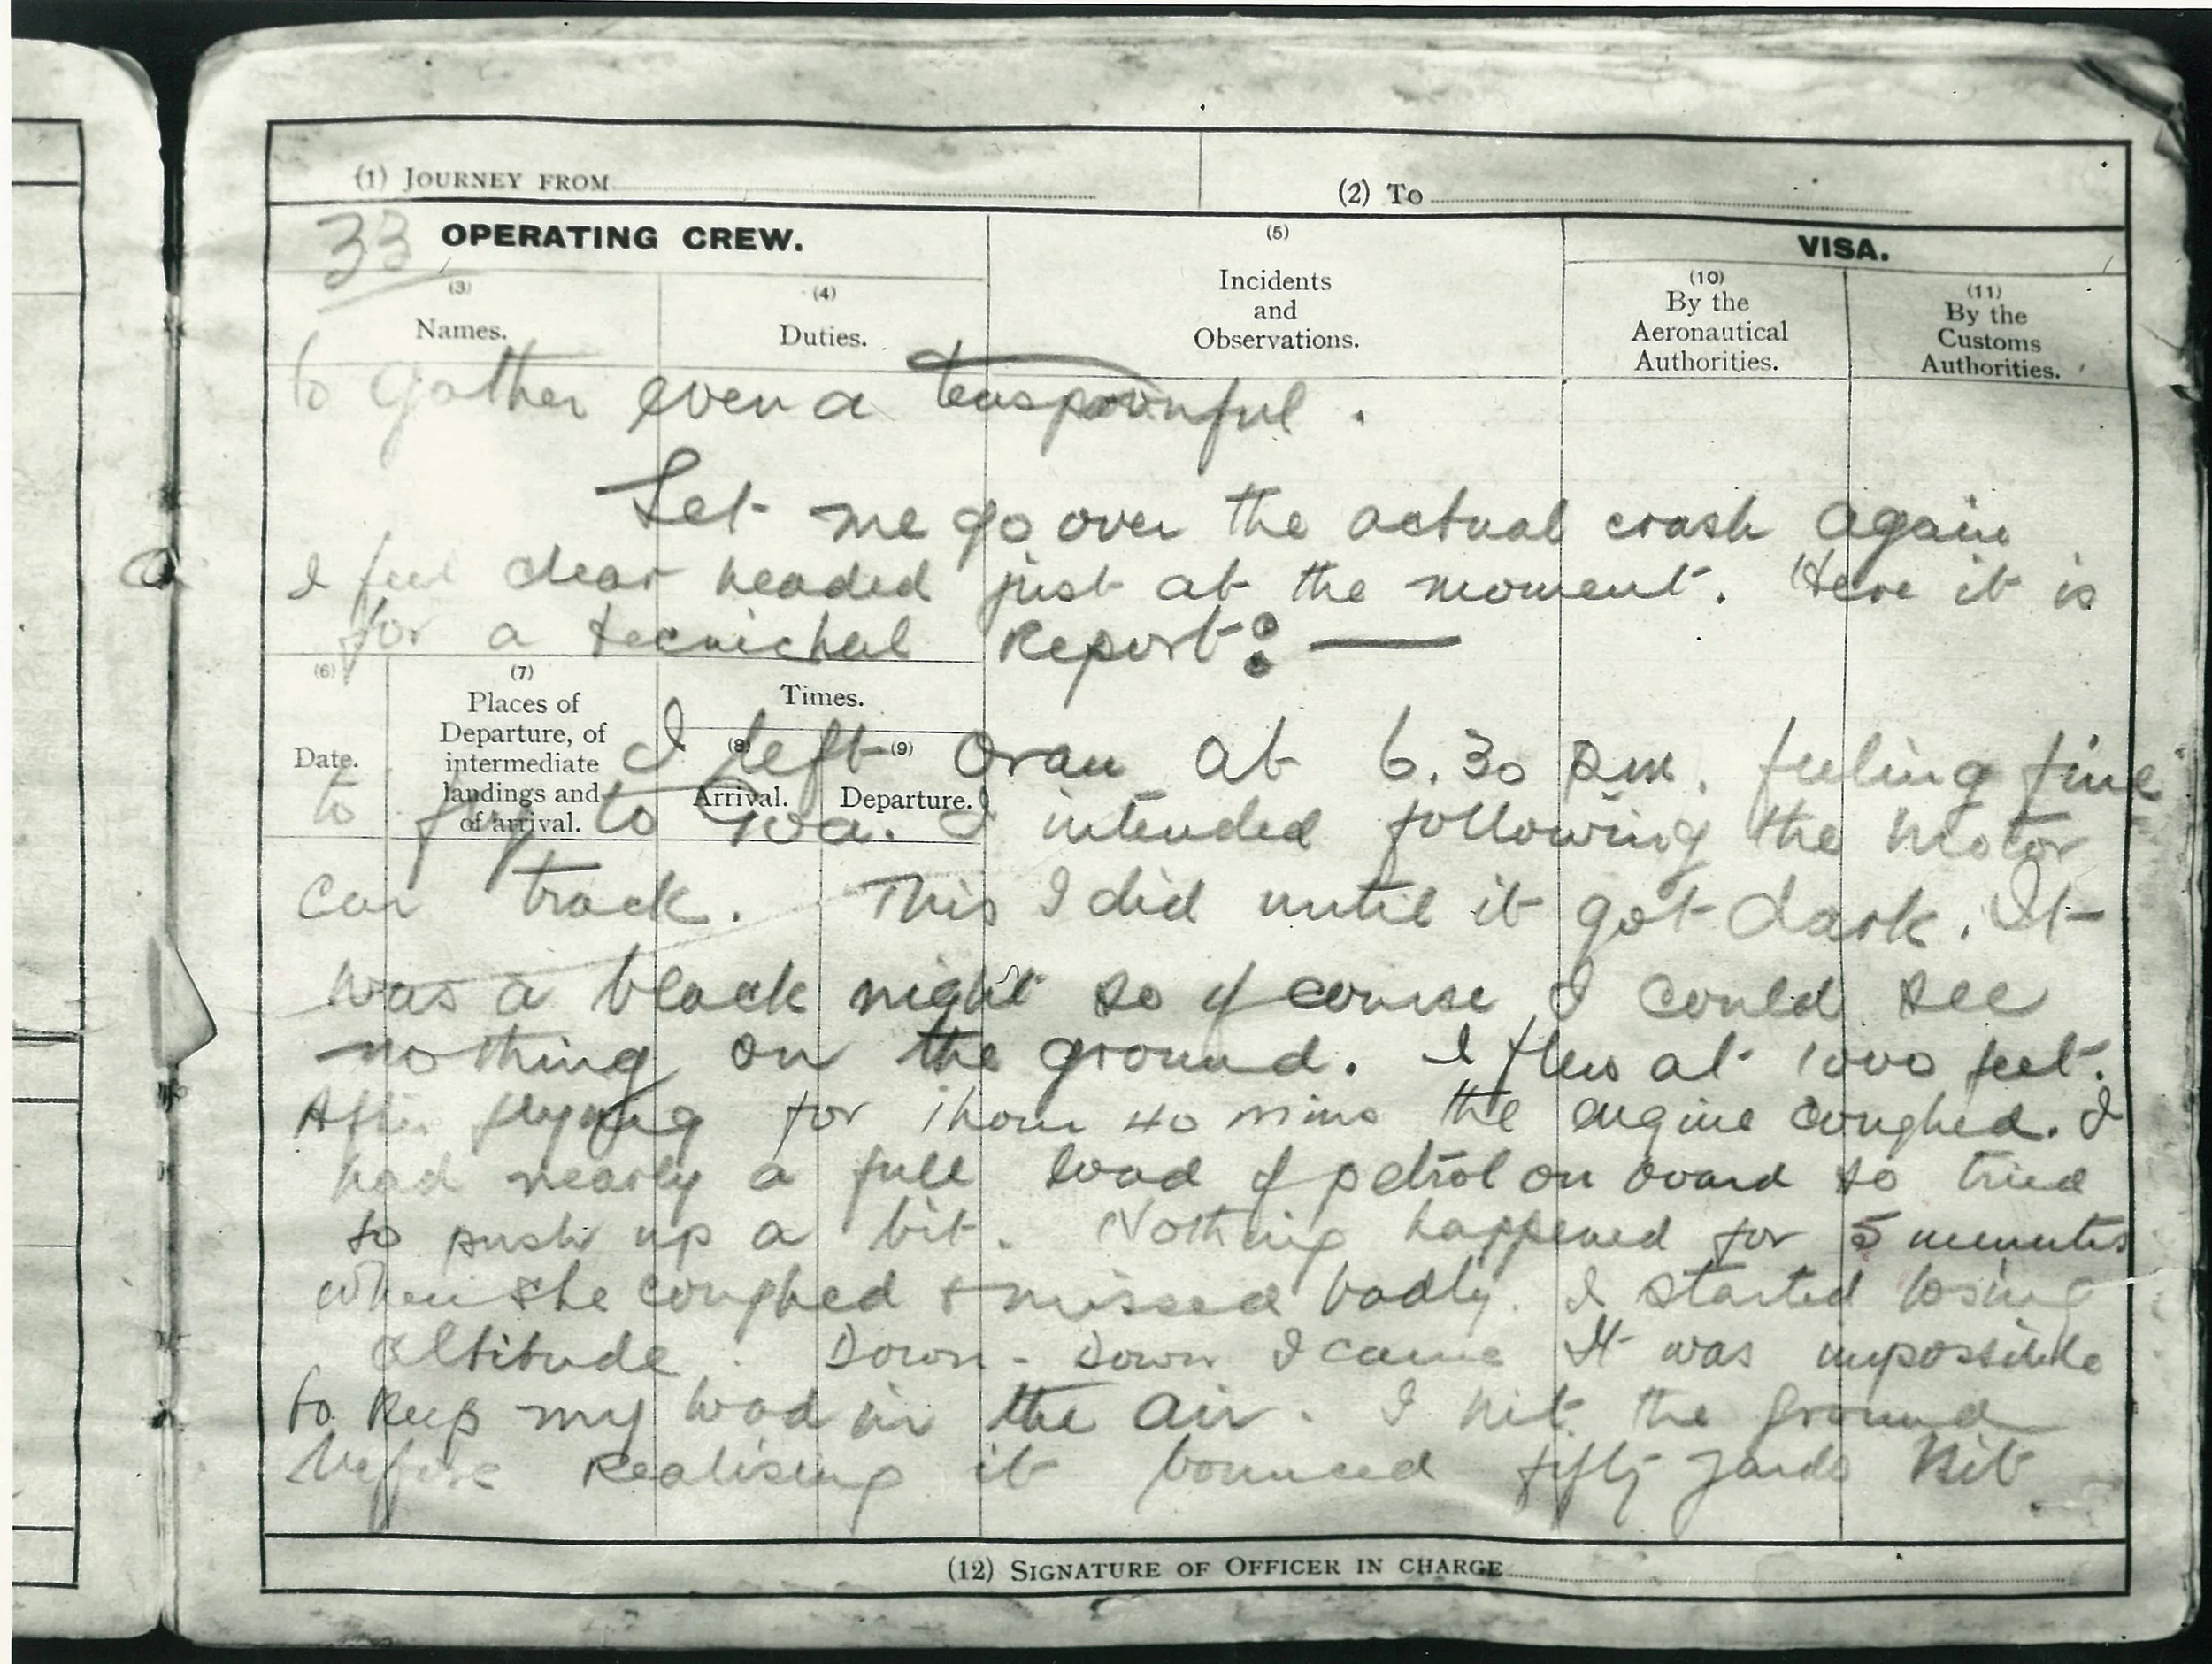 (1) JOURNEY FROM
(2) To
33
OPERATING CREW.
(3)
Names.
(4)
Duties.
(5)
Incidents
and
Observations.
VISA.
(10)
By the
Aeronautical
Authorities.
(11)
By the
Customs
Authorities.
to gather even a teaspoonful .
Let me go over the actual crash again
I feel clear headed just at the moment. Here it is
for a tecnichal Report : —
(6)
Date.
(7)
Places of
Departure, of
intermediate
landings and
of arrival.
Times.
(8)
Arrival.
(9)
Departure.
I left Oran at 6.30 pm. feeling fine
to fly to Goa. I intended following the motor
car track. This I did until it got dark. It
was a black night so of course I could see
nothing on the ground. I flew at 1000 feet.
After flying for 1 hour 40 mins the engine coughed. I
had nearly a full load of petrol on board so tried
to push up a bit. Nothing happened for 5 minutes
when she coughed + missed badly. I started losing
altitude . Down - Down I came It was impossible
to keep my load in the air. I hit the ground
before Realising it bounced fifty yards Hit
(12) SIGNATURE OF OFFICER IN CHARGE